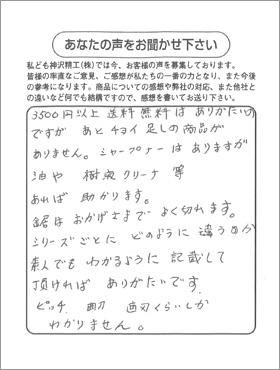 あなたの声をお聞かせ下さい
私ども神沢精工(株)では今、お客様の声を募集しております。
皆様の率直なご意見、ご感想が私たちの一番の力となり、また今後
の参考になります。商品についての感想や弊社の対応、また他社と
の違いなど何でも結構ですので、感想を書いてお送り下さい。
3500円以上送料無料はありがたいの
ですが あとチョイ足しの商品が
ありません。シャープナーはありますが
油や 樹液クリーナ 等
あれば 助かります。
鋸はおかげさまで よく切れます。
シリーズごとに どのように 違うのか
素人でも わかるように 記載して
頂ければ ありがたいです。
ピッチ 刃 くらいしか
わかりません。